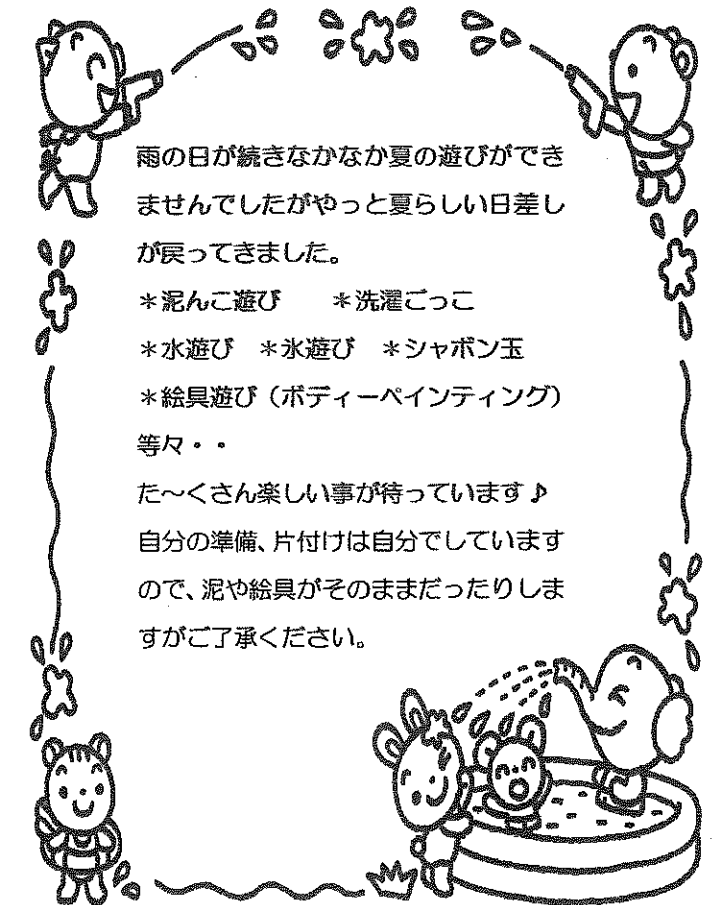 雨の日が続きなかなか夏の遊びができ
ませんでしたがやっと夏らしい日差し
が戻ってきました。
＊泥んこ遊び　　＊洗濯ごっこ
＊水遊び　＊氷遊び　＊シャボン玉
＊絵具遊び（ボディーペインティング）
等々・・
た～くさん楽しい事が待っています♪
自分の準備、片付けは自分でしています
ので、泥や絵具がそのままだったりしま
すがご了承ください。